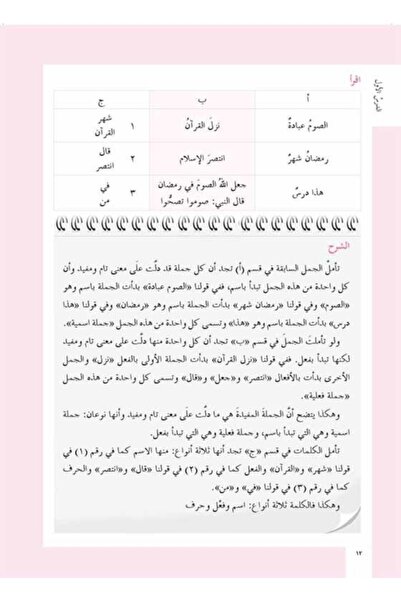 الدرسُ الأول
اقرأ
أ ب ج
الصومُ عبادةٌ نزلَ القرآنُ ١ شهر
القرآن
رمضانُ شهرٌ انتصرَ الإسلام ٢ قال
انتصر
هذا درسٌ جعل اللهُ الصومَ في رمضان ٣ في
قال النبي: صوموا تصحُّوا من
الشرح
تأمل الجمل السابقة في قسم (أ) تجد أن كل جملة قد دلّت على معنى تام ومفيد وأن
كل واحدة من هذه الجمل تبدأ باسم، ففي قولنا «الصوم عبادة» بدأت الجملة باسم وهو
«الصوم» وفي قولنا «رمضان شهر» بدأت الجملة باسم وهو «رمضان» وفي قولنا «هذا
درس» بدأت الجملة باسم وهو «هذا» وتسمى كل واحدة من هذه الجمل «جملة اسمية».
ولو تأملتَ الجملَ في قسم «ب» تجد أن كل واحدة منها دلّت على معنى تام ومفيد
لكنها تبدأ بفعل. ففي قولنا «نزل القرآن» بدأت الجملة الأولى بالفعل «نزل» والجمل
الأخرى بدأت بالأفعال «انتصر» و«جعل» و«قال» وتسمى كل واحدة من هذه الجمل
«جملة فعلية».
وهكذا يتضح أنَّ الجملةَ المفيدةَ هي ما دلّت على معنى تام ومفيد وأنها نوعان: جملة
اسمية وهي التي تبدأ باسم، وجملة فعلية وهي التي تبدأ بفعل.
تأمل الكلمات في قسم «ج» تجد أنها ثلاثة أنواع: منها الاسم كما في رقم (١) في
قولنا «شهر» و«القرآن» والفعل كما في رقم (٢) في قولنا «قال» و«انتصر» والحرف
كما في رقم (٣) في قولنا «في» و«من».
وهكذا فالكلمة ثلاثة أنواع: اسم وفعْل وحرف
١٢